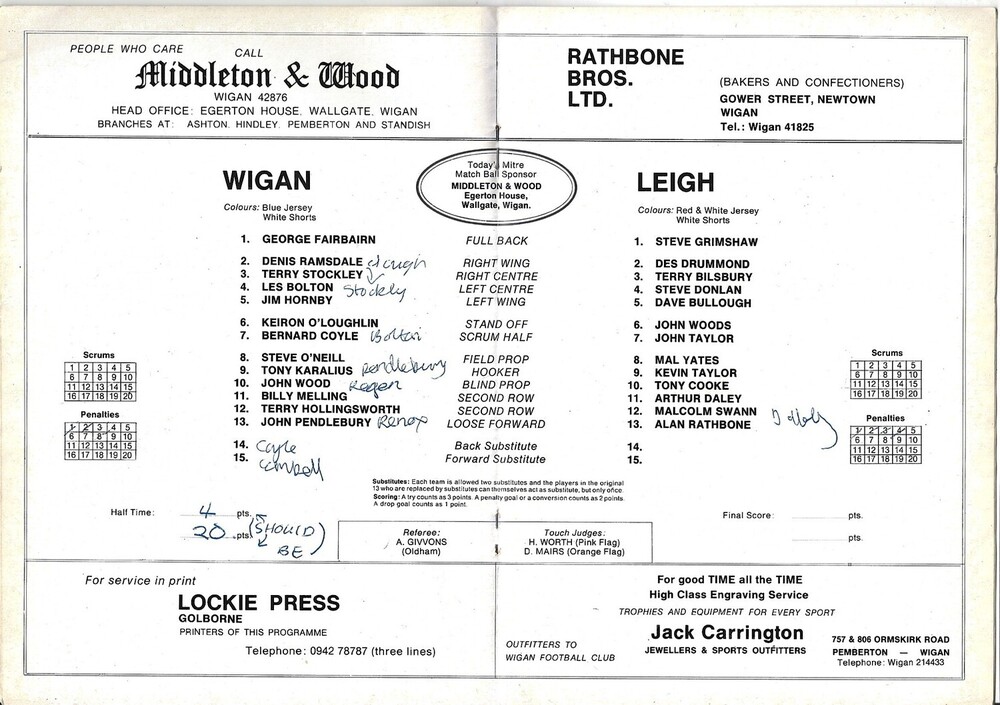 PEOPLE WHO CARE
CALL
Middleton & Wood
WIGAN 42876
HEAD OFFICE: EGERTON HOUSE, WALLGATE, WIGAN
BRANCHES AT: ASHTON, HINDLEY, PEMBERTON AND STANDISH
RATHBONE
BROS.
LTD.
(BAKERS AND CONFECTIONERS)
GOWER STREET, NEWTOWN
WIGAN
Tel.: Wigan 41825
Today's Mitre
Match Ball Sponsor
MIDDLETON & WOOD
Egerton House,
Wallgate, Wigan.
WIGAN
Colours: Blue Jersey
White Shorts
LEIGH
Colours: Red & White Jersey
White Shorts
1. GEORGE FAIRBAIRN FULL BACK 1. STEVE GRIMSHAW
2. DENIS RAMSDALE clough RIGHT WING 2. DES DRUMMOND
3. TERRY STOCKLEY RIGHT CENTRE 3. TERRY BILSBURY
4. LES BOLTON Stockley LEFT CENTRE 4. STEVE DONLAN
5. JIM HORNBY LEFT WING 5. DAVE BULLOUGH
6. KEIRON O'LOUGHLIN STAND OFF 6. JOHN WOODS
7. BERNARD COYLE Bolton SCRUM HALF 7. JOHN TAYLOR
8. STEVE O'NEILL FIELD PROP 8. MAL YATES
9. TONY KARALIUS pendlebury HOOKER 9. KEVIN TAYLOR
10. JOHN WOOD Regan BLIND PROP 10. TONY COOKE
11. BILLY MELLING SECOND ROW 11. ARTHUR DALEY
12. TERRY HOLLINGSWORTH SECOND ROW 12. MALCOLM SWANN
13. JOHN PENDLEBURY LOOSE FORWARD 13. ALAN RATHBONE
14. Coyle Back Substitute 14.
15. Forward Substitute 15.
Scrums
1 2 3 4 5
6 7 8 9 10
11 12 13 14 15
16 17 18 19 20
Penalties
1 2 3 4 5
6 7 8 9 10
11 12 13 14 15
16 17 18 19 20
Scrums
1 2 3 4 5
6 7 8 9 10
11 12 13 14 15
16 17 18 19 20
Penalties
1 2 3 4 5
6 7 8 9 10
11 12 13 14 15
16 17 18 19 20
Substitutes: Each team is allowed two substitutes and the players in the original
13 who are replaced by substitutes can themselves act as substitute, but only once.
Scoring: A try counts as 3 points. A penalty goal or a conversion counts as 2 points.
A drop goal counts as 1 point.
Half Time: 4 pts.
20 pts. (SHOULD
BE)
Final Score: pts.
pts.
Referee:
A. GIVVONS
(Oldham)
Touch Judges:
H. WORTH (Pink Flag)
D. MAIRS (Orange Flag)
For service in print
LOCKIE PRESS
GOLBORNE
PRINTERS OF THIS PROGRAMME
Telephone: 0942 78787 (three lines)
For good TIME all the TIME
High Class Engraving Service
TROPHIES AND EQUIPMENT FOR EVERY SPORT
OUTFITTERS TO
WIGAN FOOTBALL CLUB
Jack Carrington
JEWELLERS & SPORTS OUTFITTERS
757 & 806 ORMSKIRK ROAD
PEMBERTON — WIGAN
Telephone: Wigan 214433